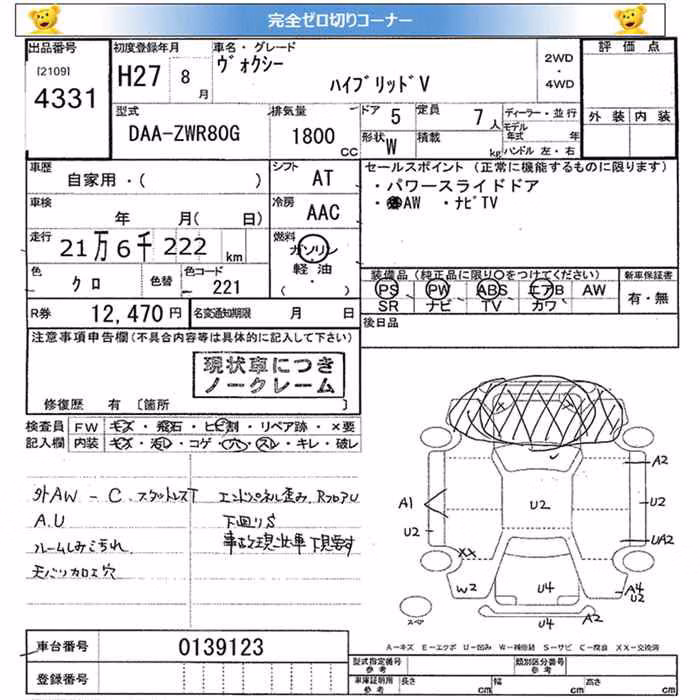 完全ゼロ切りコーナー
出品番号
[2109]
4331
初度登録年月
H27 8 月
車名・グレード
ヴォクシー
ハイブリッドV
2WD
・
4WD
評価点
外装 内装
型式
DAA-ZWR80G
排気量
1800 CC
ドア 5
定員 7 人
形状 W
積載 kg
ディーラー・並行
モデル年式 年
ハンドル 左・右
車歴
自家用・( )
シフト
AT
車検
年 月( 日)
冷房
AAC
走行
21万6千222 km
燃料
ガソリン
・
軽油
( ・ )
色
クロ
色替
色コード
221
R券 12,470 円
名変通知期限 月 日
セールスポイント (正常に機能するものに限ります)
・パワースライドドア
・AW ・ナビTV
装備品 (純正品に限り○をつけてください)
PS PW ABS エアB AW
SR ナビ TV カワ
新車保証書
有・無
後日品
注意事項申告欄(不具合内容等は具体的に記入して下さい)
現状車につき
ノークレーム
修復歴 有 [箇所 ]
検査員
記入欄
FW キズ・飛石・ヒビ割・リペア跡・×要
内装 キズ・汚レ・コゲ・穴・スレ・キレ・破レ
外AW - C. スタットレスT
A.U
ルームしみ汚れ
モバリカロエ穴
エンドパネル歪み. RフロアU
下回りS
事故現状出車 下見要す
A2
A1
U2
U2
U2
UA2
XX
W2
U4
A4
U2
U4
A2
スペア
A−キズ E−エクボ U−凹み W−補修跡 S−サビ C−腐食 XX−交換済
車台番号 0139123
登録番号
型式指定番号
参考
類別区分番号
参考
車庫証明用
参考
長さ cm
幅 cm
高さ cm